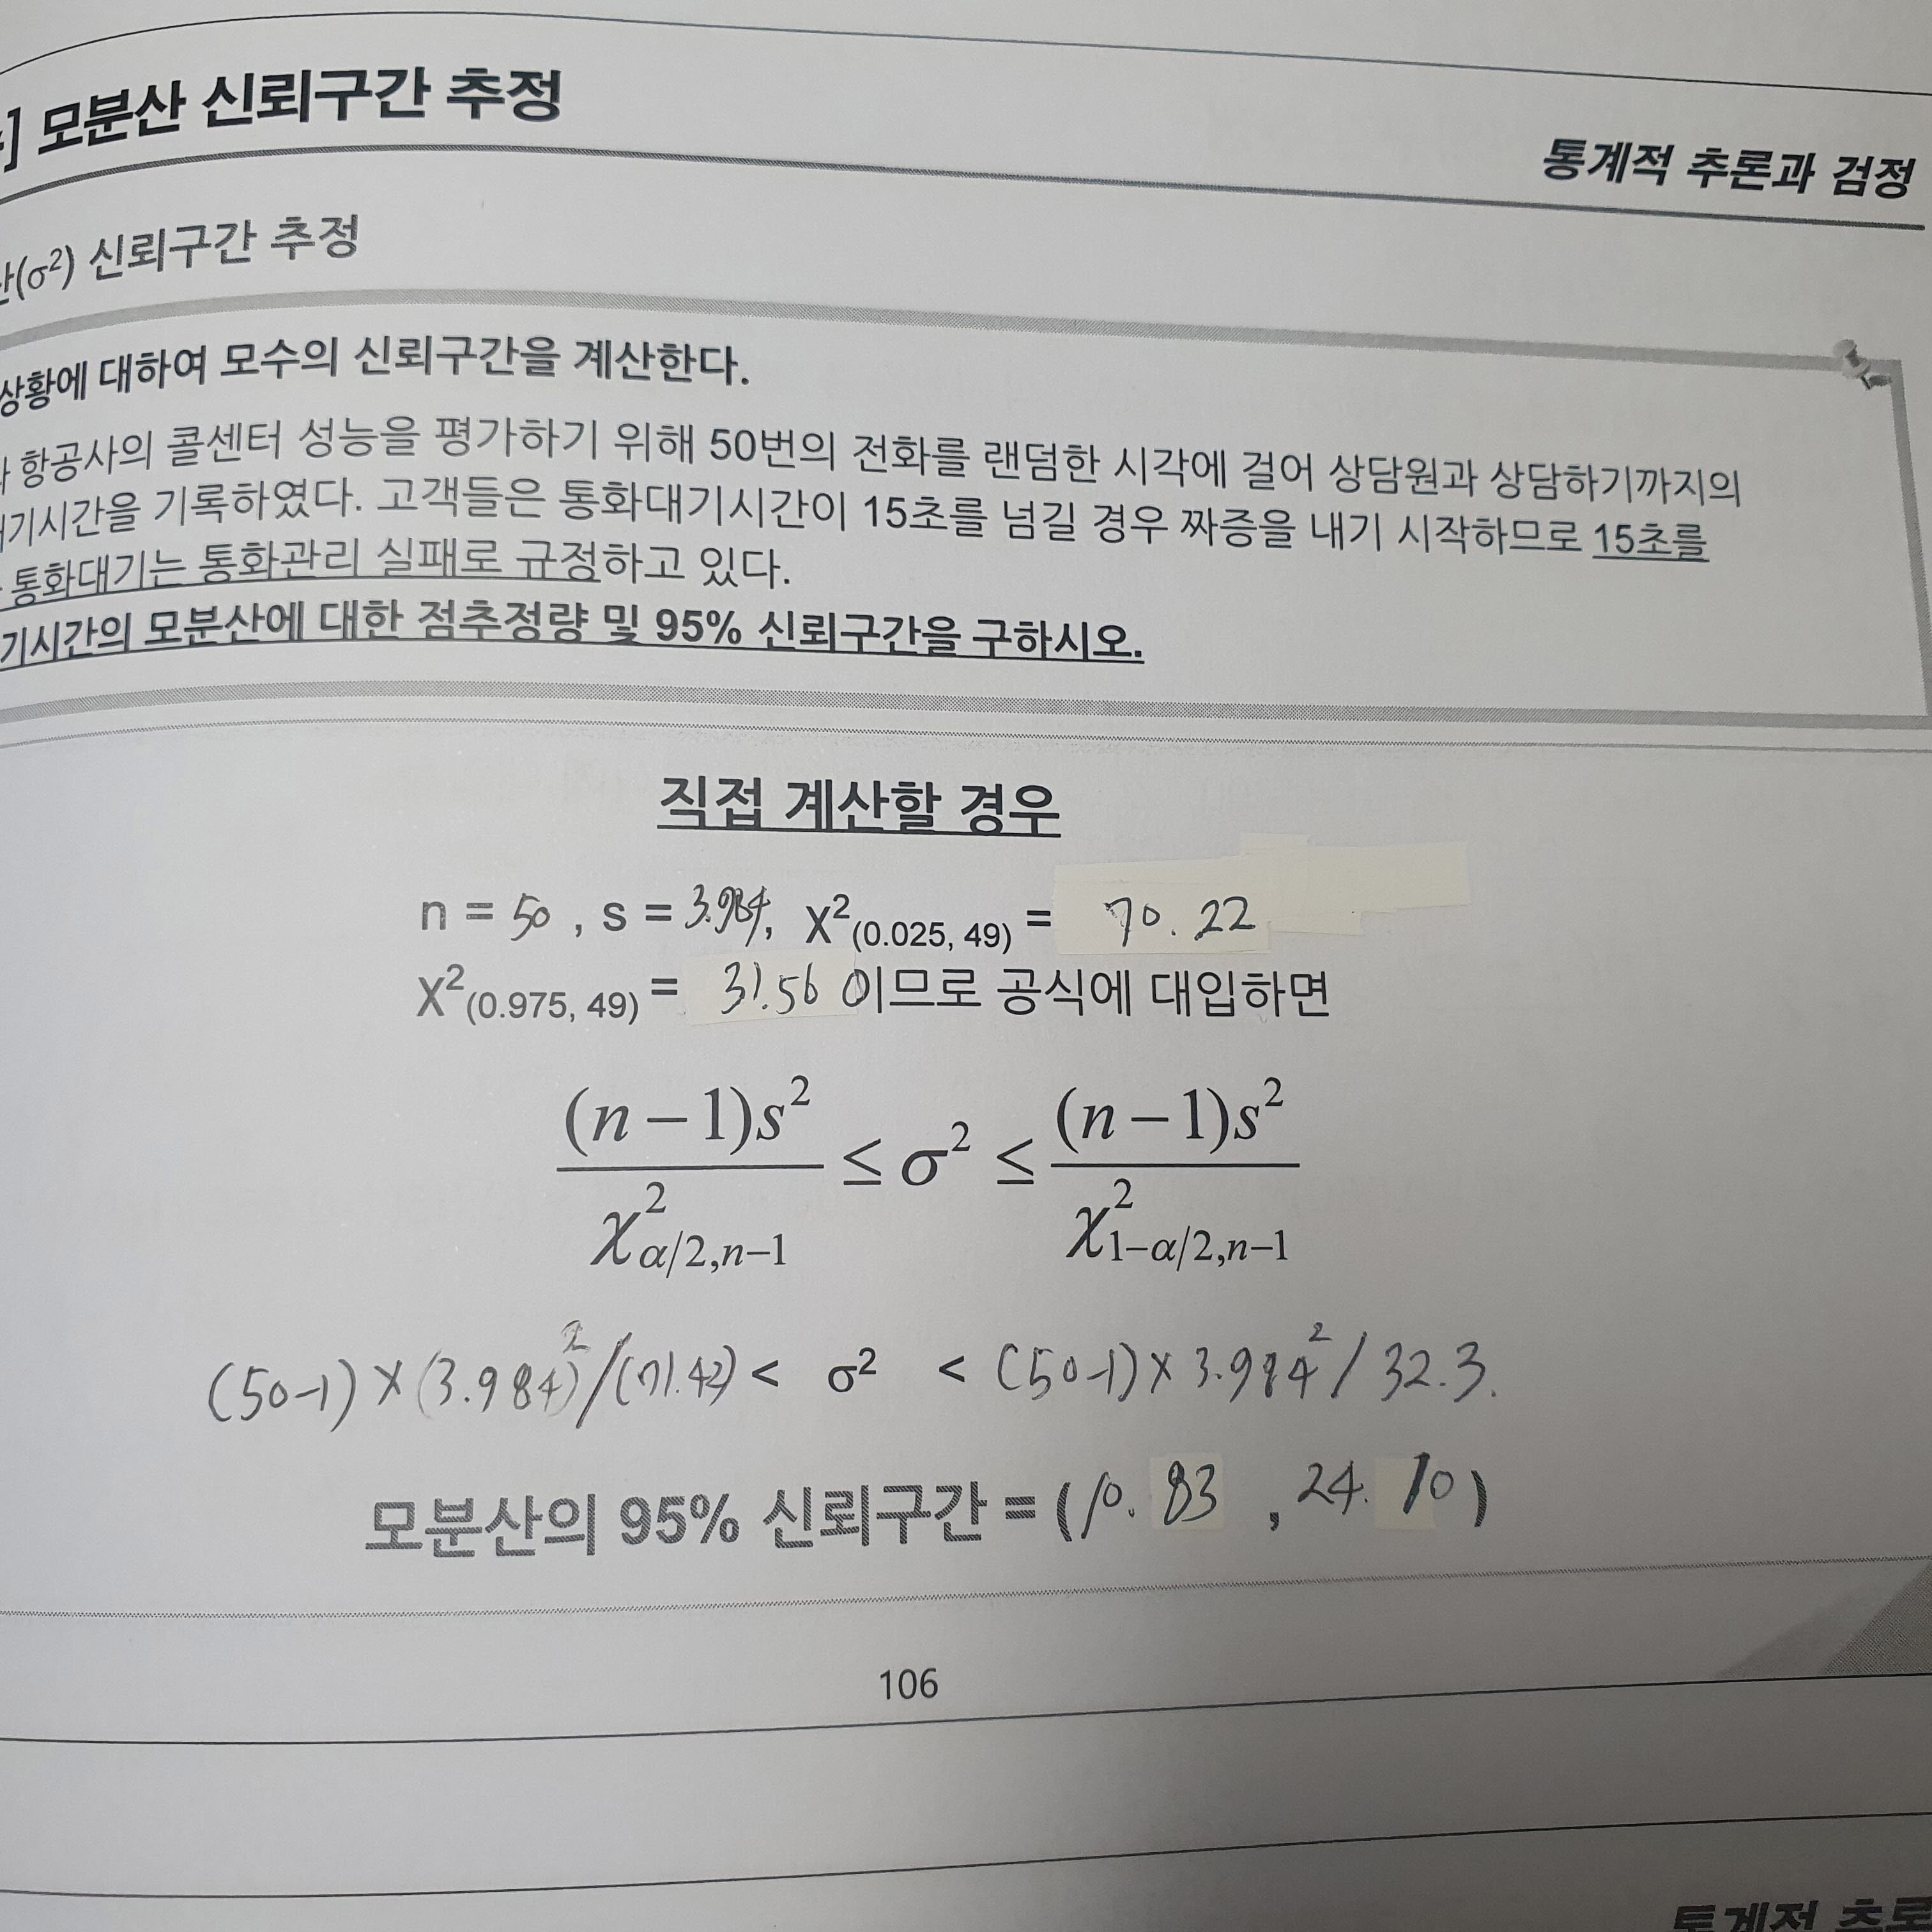 모분산 신뢰구간 추정
통계적 추론과 검정
(σ²) 신뢰구간 추정
상황에 대하여 모수의 신뢰구간을 계산한다.
항공사의 콜센터 성능을 평가하기 위해 50번의 전화를 랜덤한 시각에 걸어 상담원과 상담하기까지의
기시간을 기록하였다. 고객들은 통화대기시간이 15초를 넘길 경우 짜증을 내기 시작하므로 15초를
통화대기는 통화관리 실패로 규정하고 있다.
기시간의 모분산에 대한 점추정량 및 95% 신뢰구간을 구하시오.
직접 계산할 경우
n = 50 , s = 3.984, X²(0.025, 49) = 70.22
X²(0.975, 49) = 31.56 이므로 공식에 대입하면
(n−1)s² / χ²α/2,n−1 ≤ σ² ≤ (n−1)s² / χ²1−α/2,n−1
(50-1) × (3.984)²/(71.42) < σ² < (50-1) × 3.984² / 32.3.
모분산의 95% 신뢰구간 = (10.83 , 24.10)
106